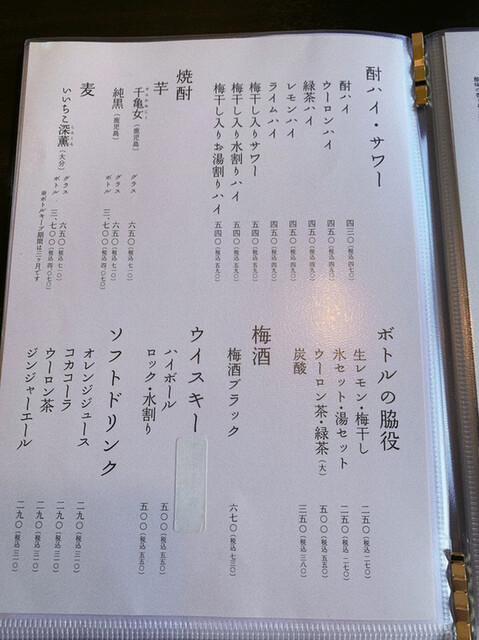 酎ハイ・サワー
酎ハイ 四三〇(税込 四七〇)
ウーロンハイ 四五〇(税込 四九〇)
緑茶ハイ 四五〇(税込 四九〇)
レモンハイ 四五〇(税込 四九〇)
ライムハイ 四五〇(税込 四九〇)
梅干し入りサワー 五四〇(税込 五九〇)
梅干し入り水割りハイ 五四〇(税込 五九〇)
梅干し入りお湯割りハイ 五四〇(税込 五九〇)
焼酎
芋
千亀女(鹿児島) グラス 六五〇(税込 七一〇)
純黒(鹿児島) グラス 六五〇(税込 七一〇)
ボトル 三、七〇〇(税込 四、〇七〇)
麦
いいちこ深薫(大分) グラス 六五〇(税込 七一〇)
ボトル 三、七〇〇(税込 四、〇七〇)
※ボトルキープ期間は三ヶ月です
ボトルの脇役
生レモン・梅干し 二五〇(税込 二七〇)
氷セット・湯セット 二五〇(税込 二七〇)
ウーロン茶・緑茶(大) 五〇〇(税込 五五〇)
炭酸 三五〇(税込 三八〇)
梅酒
梅酒ブラック 六七〇(税込 七三〇)
ウイスキー
ハイボール 五〇〇(税込 五五〇)
ロック・水割り 五〇〇(税込 五五〇)
ソフトドリンク
オレンジジュース 二九〇(税込 三一〇)
コカコーラ 二九〇(税込 三一〇)
ウーロン茶 二九〇(税込 三一〇)
ジンジャーエール 二九〇(税込 三一〇)